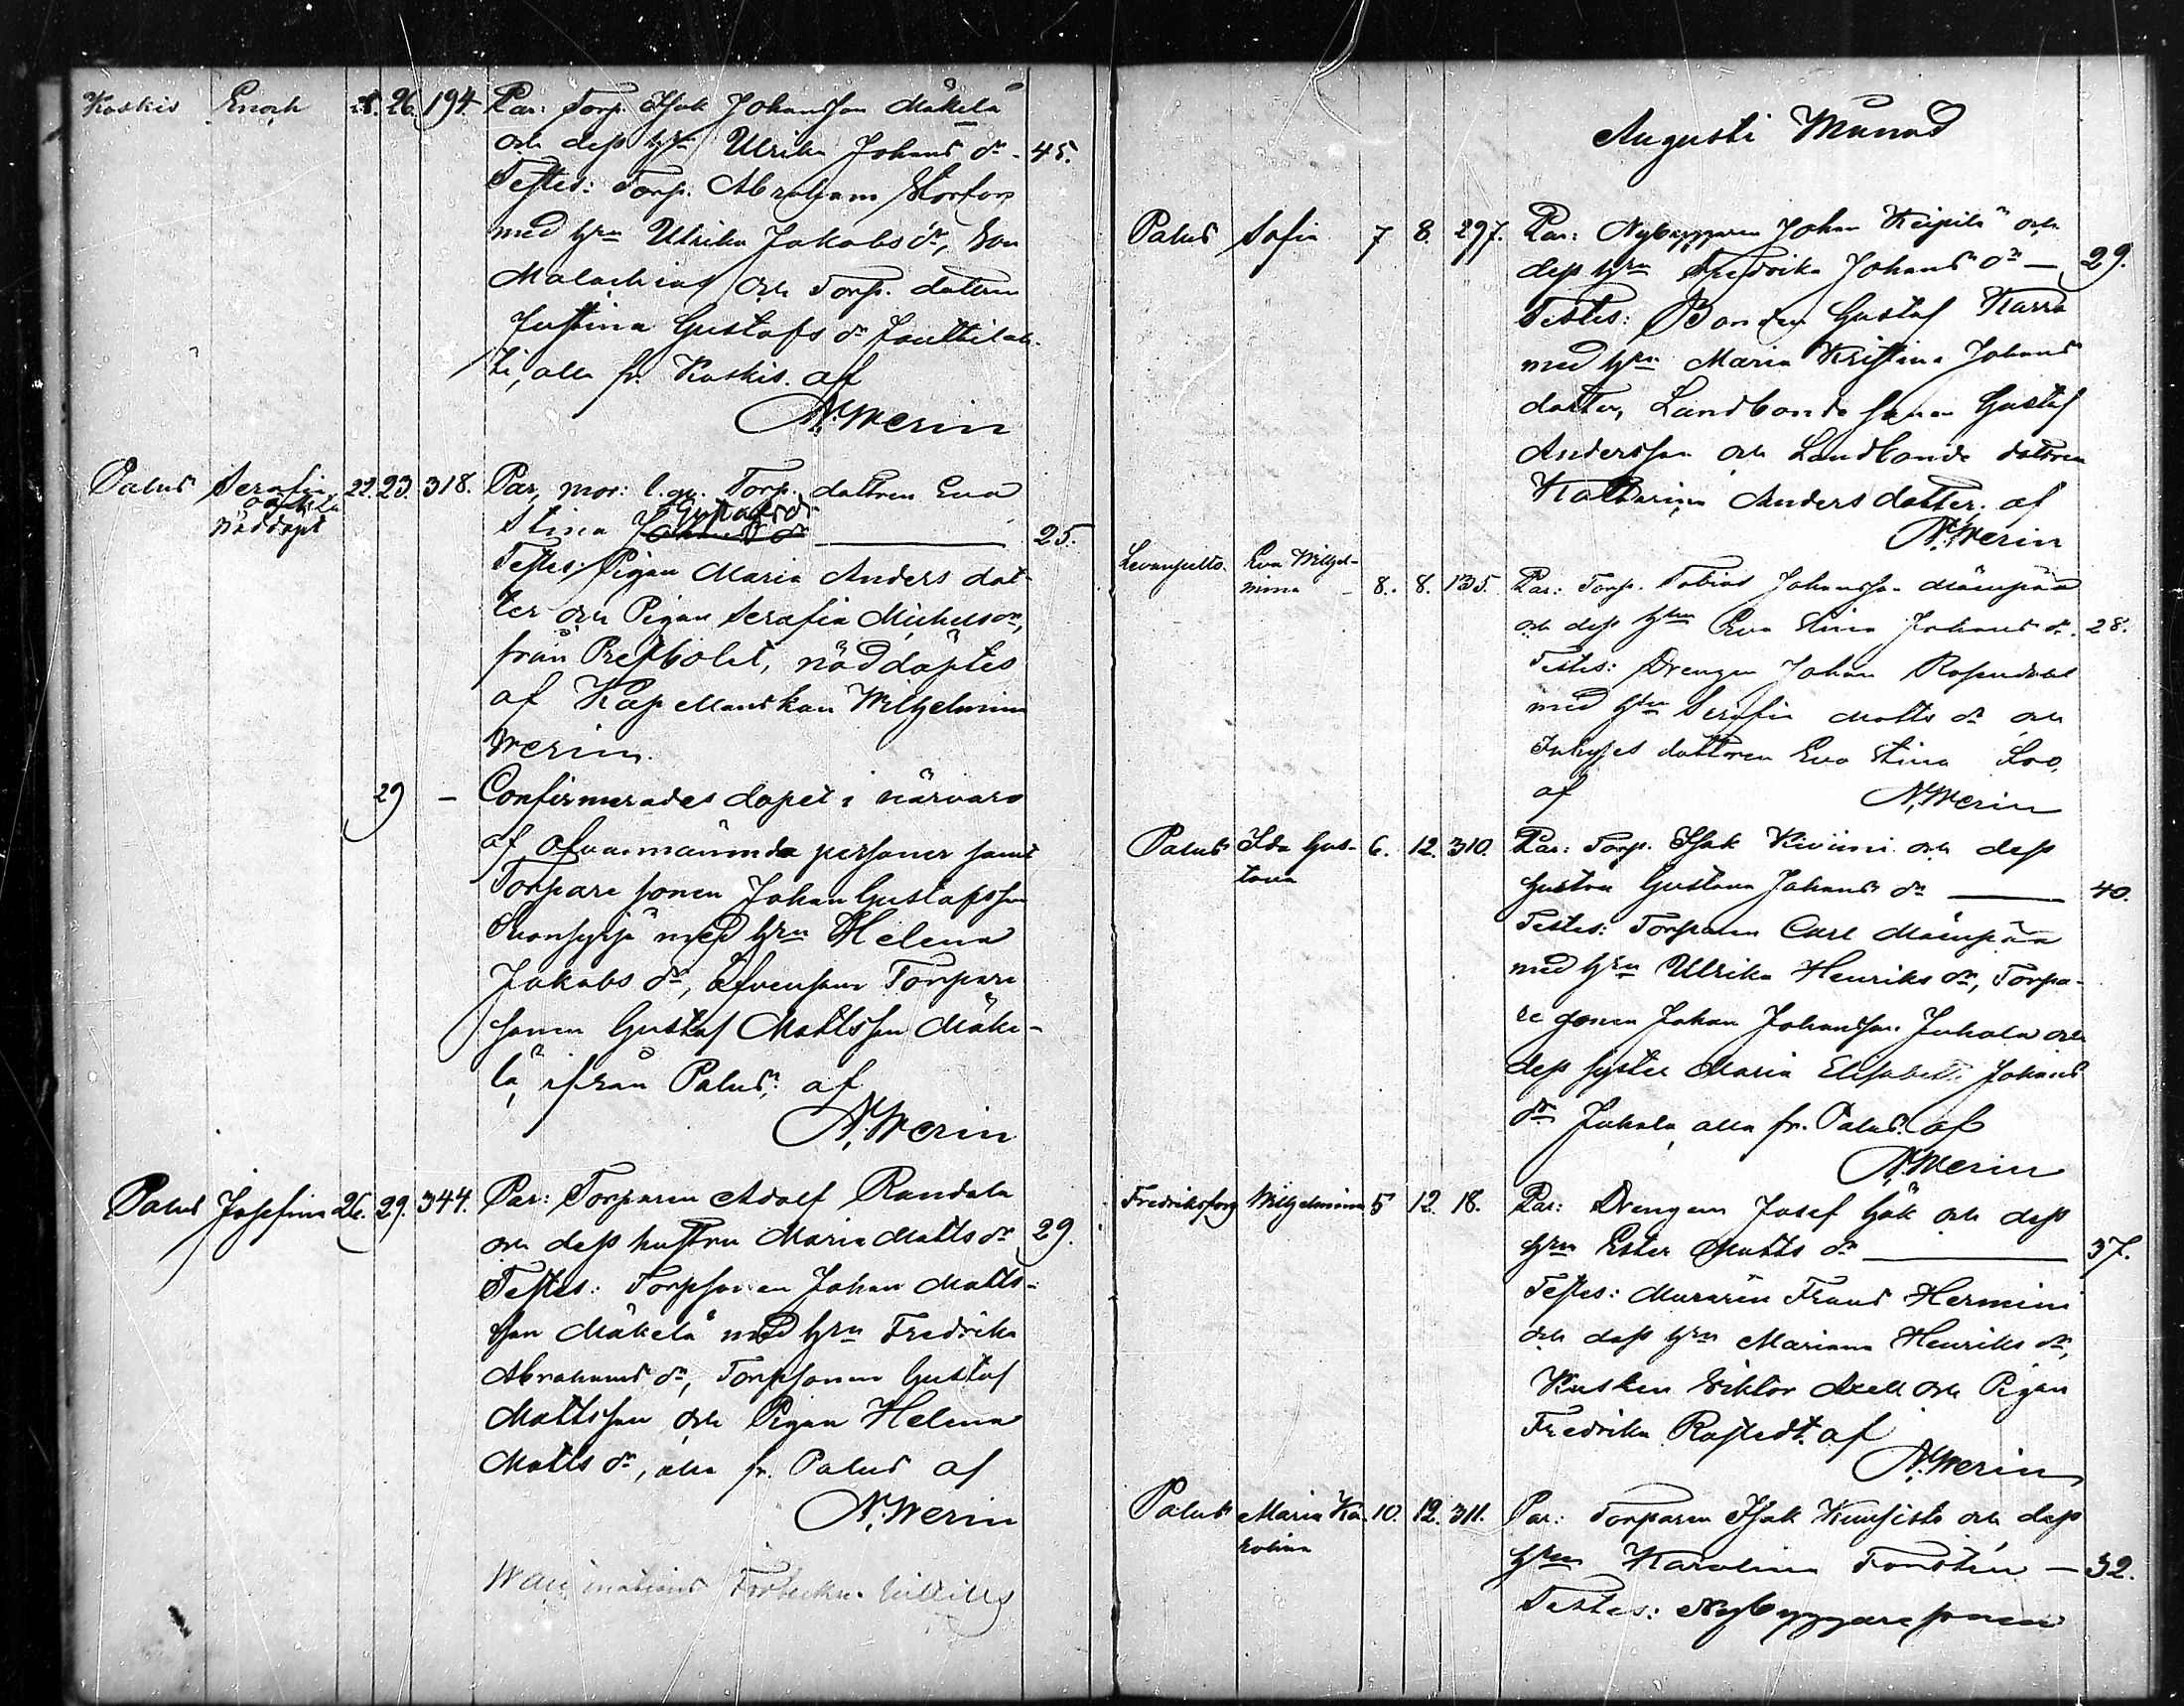 Koskis Enoch 26. 194. Par: Torp. Isak Johansson Mäkelä
och dess hru Ulrika Johansdr - 45.
Testes: Torp. Abraham Storfors
med hru Ulrika Jakobsdr, Son
Malachias och Torp. dottern
Justina Gustafs dr
ti, alla fr. Koskis. af
N. Werin
Palus Serafia 22. 23. 318. Par, mor: l. qv. Torp. dottren Eva
oäkta
nöddöpt
Stina Gustafsdr 25.
Testes: Pigan Maria Anders dot-
ter och Pigan Serafia Michelsdr,
från Prestbolet, nöddöptes
af Kapellanskan Wilhelmina
Werin.
29 – Confirmerades dopet i närvaro
af ofvannämnda personer samt
Torpare sonen Johan Gustafsson
med hru Helena
Jakobs dr, äfvensom Torpare
sonen Gustaf Mattsson Mäke-
lä, ifrån Palus. af
N. Werin
Palus Josefina 26. 29. 344. Par: Torparen Adolf Randala
och dess hustru Maria Matts dr 29.
Testes: Torpsonen Johan Matts-
son Mäkelä med hru Fredrika
Abrahams dr, Torpsonen Gustaf
Mattsson och Pigan Helena
Matts dr, alla fr. Palus af
N. Werin
Augusti Månad
Palus Sofia 7 8. 297. Par: Nybyggaren Johan Keipilä och
dess hru Fredrika Johans dr — 29.
Testes: Bonden Gustaf Karra
med hru Maria Kristina Johans
dotter, Landbonde sonen Gustaf
Andersson och Landbonde dottren
Katharina Anders dotter. af
N. Werin
Levanpelto. Eva Wilhel-
mina 8. 8. 135. Par: Torp. Tobias Johansson Mäenpää
och dess hru Eva Stina Johans dr. 28.
Testes: Drengen Johan Rosendahl
med hru Serafia Matts dr och
Inhyses dottren Eva Stina Loo,
af N. Werin
Palus Ida Gus-
tava 6. 12. 310. Par: Torp. Isak Kiviini och dess
hustru Gustava Johans dr — 40.
Testes: Torparen Carl Mäenpää
med hru Ulrika Henriks dr, Torpa-
re sonen Johan Johansson Juhala och
dess syster Maria Elisabeth Johans
dr Juhala, alla fr. Palus. af
N. Werin
Fredriksfors Wilhelmina 5 12. 18. Par: Drengen Josef Hök och dess
hru Ester Matts dr — 37.
Testes: Muraren Frans Hermini
och dess hru Mariana Henriks dr,
Kusken Viktor Axell och Pigan
Fredrika Rostedt. af
N. Werin
Palus Maria Ka-
rolina 10. 12. 311. Par: Torparen Isak Kuusisto och dess
hru Karolina Forstén — 32.
Testes: Nybyggare sonen